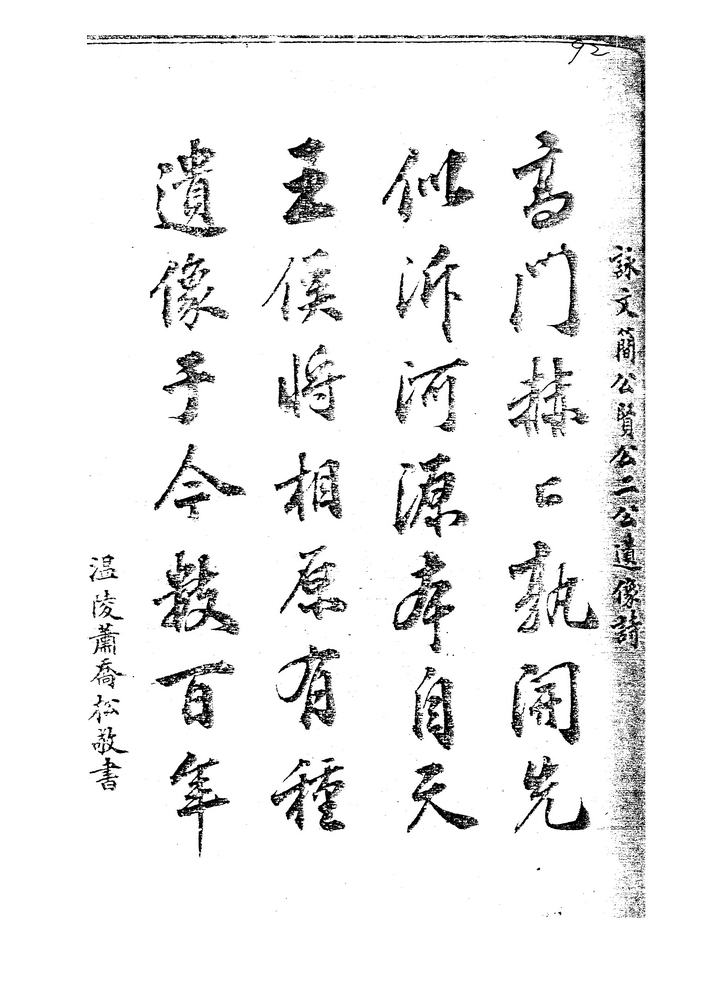 92
詠文簡公賢公二公遺像詩
高門赫〻孰開先
似泝河源本自天
王侯將相原有種
遺像于今數百年
温陵蕭喬松敬書